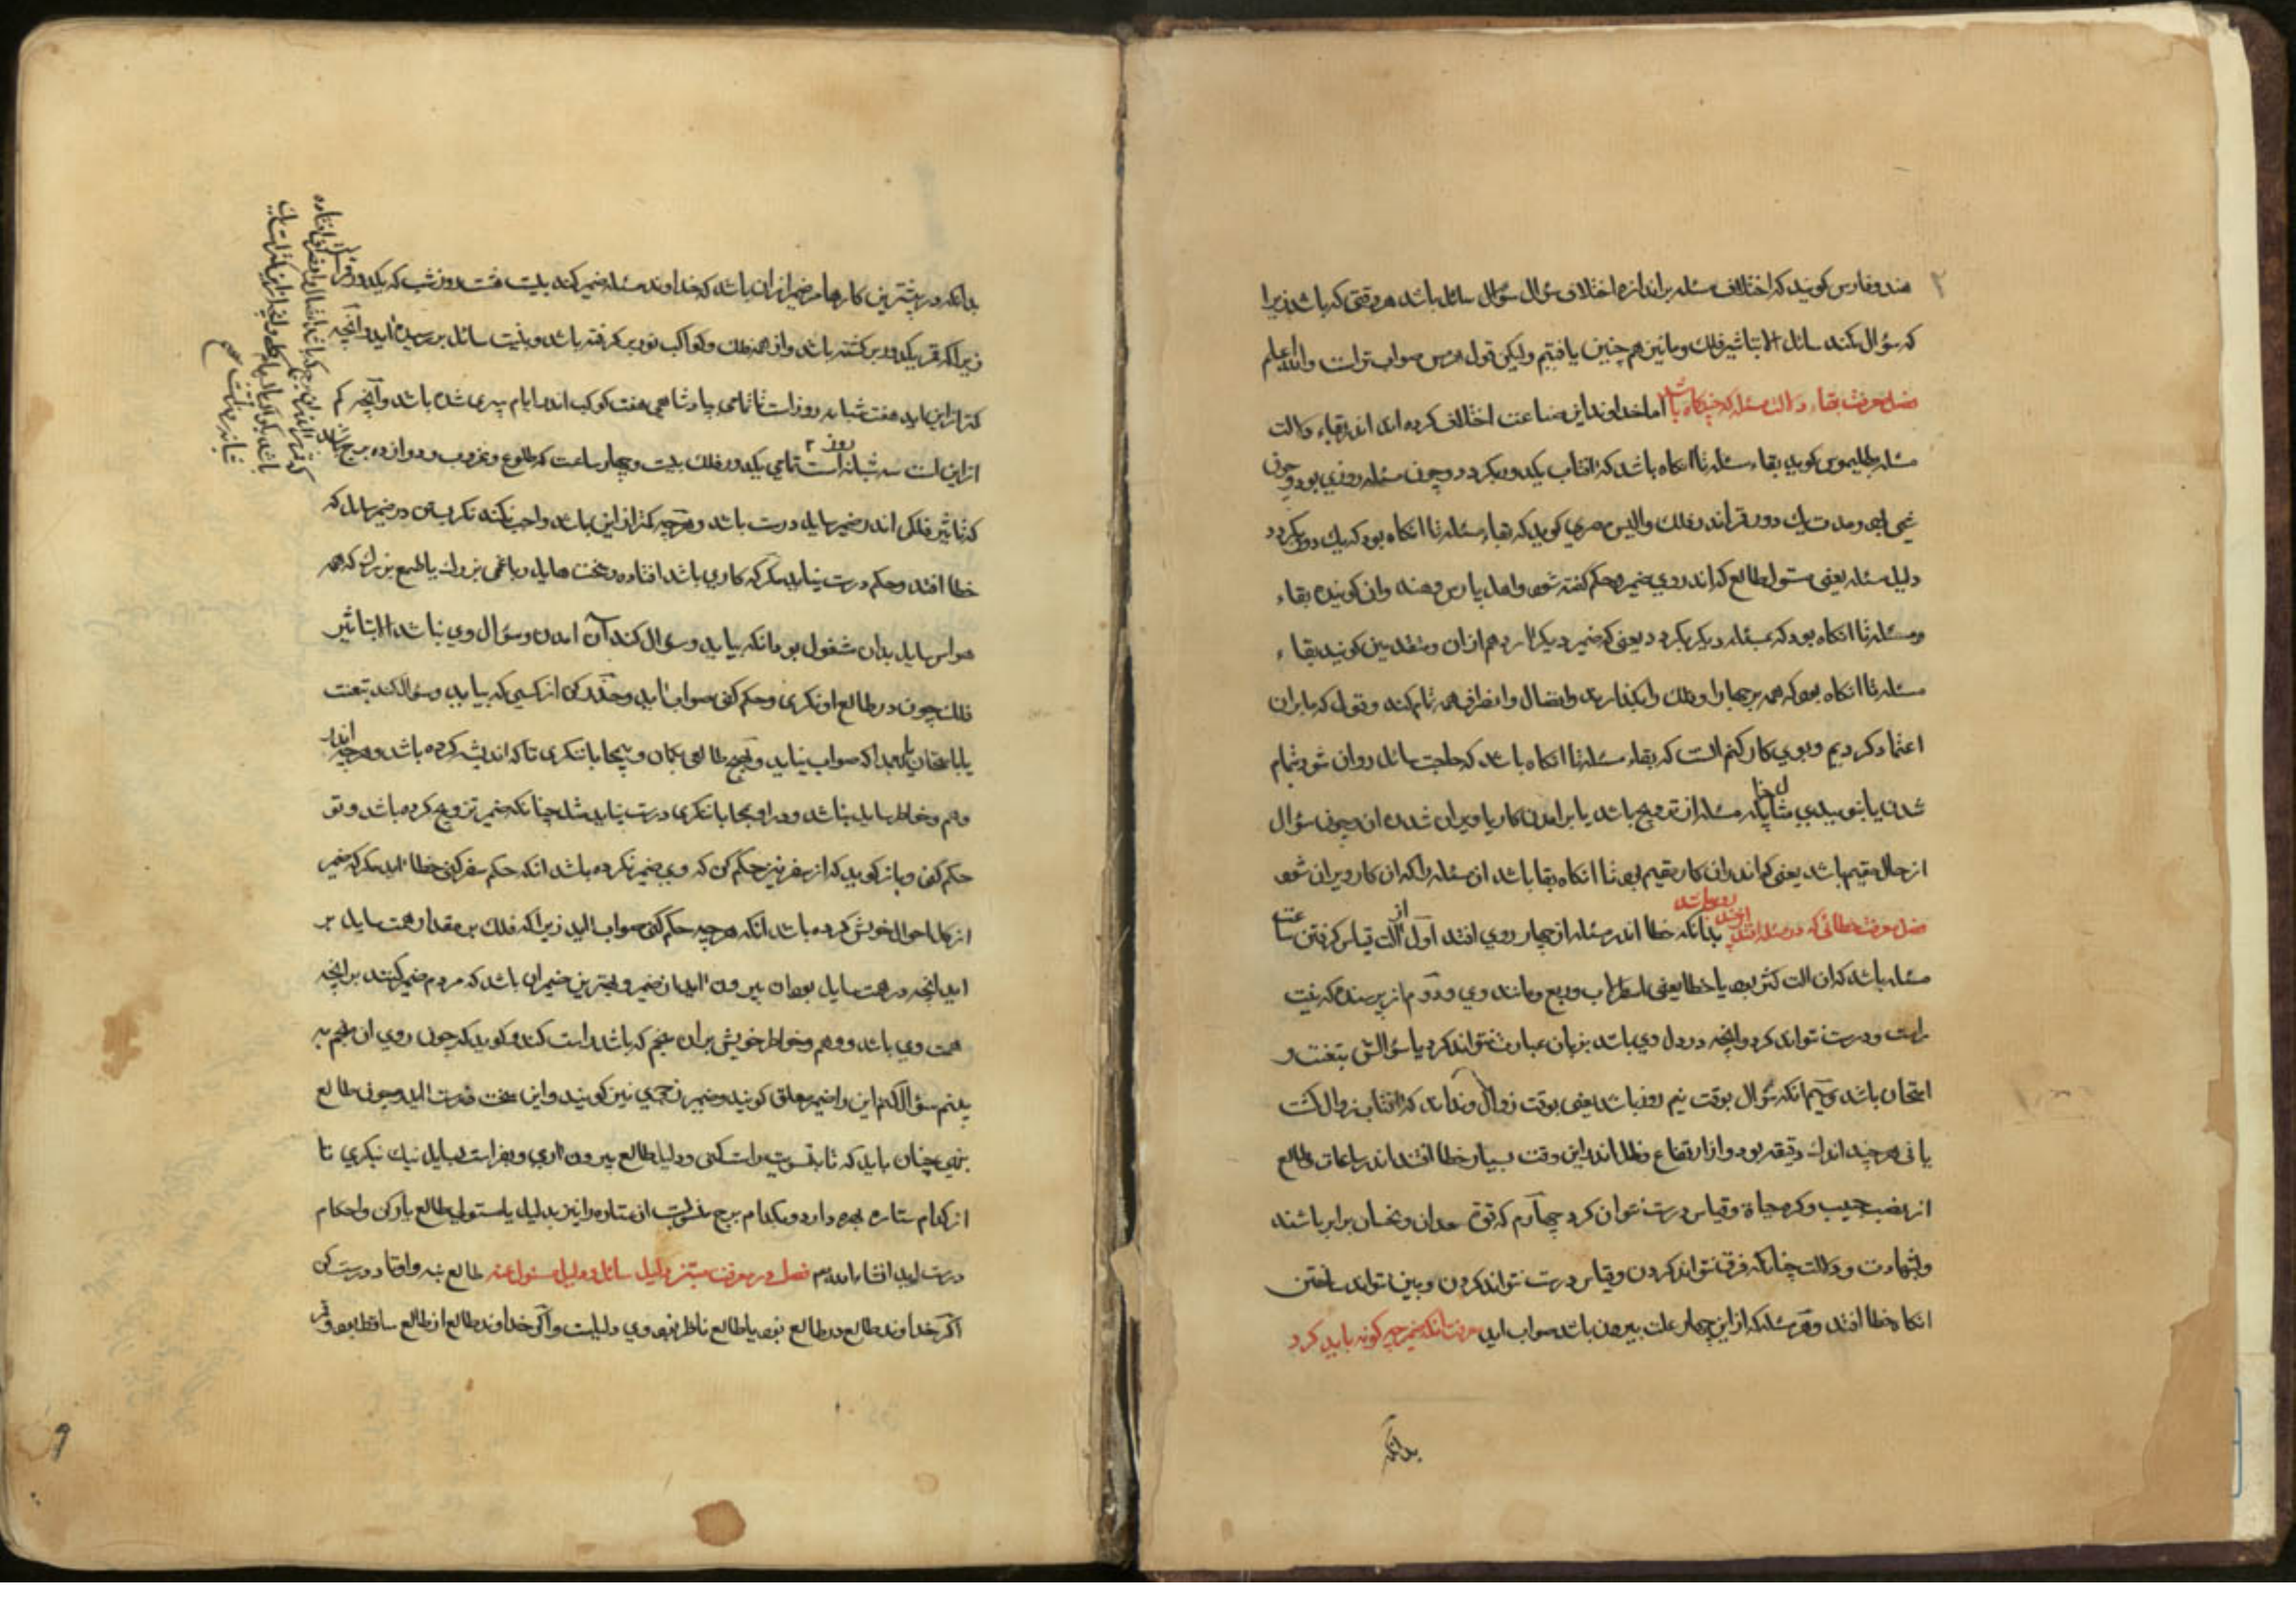 هند و فارس کویند که اختلاف مسئله بر اندازه اختلاف سؤال سائل باشد هر وقتی که باشد زیرا
که سؤال نکند سائل الا بتاثیر فلک وما نیز هم چنین یافتیم ولیکن قول هرمس صواب تراست والله اعلم
فصل معرفت بقاء دلالت مسئله که چندکاه باشد اما خداوندان این صناعت اختلاف کرده اند اندر بقاء دلالت
مسئله بطلیموس کوید بقاء مسئله تا انکاه باشد که افتاب یکدور بکردد و چون مسئله روزی بود و چون
دور قمر اندر فلک و والیس مصری کوید که بقاء مسئله تا انکاه بود که یک دور بکردد
دلیل مسئله یعنی مستولی طالع که اندر وی ضمیر و حکم کفته شود و اهل پارس و هند وان کویند بقاء
ومسئله تا انکاه بود که بمسئله دیکر بکردد یعنی که ضمیر دیکر ارد هم از ان ومتقدمین کویند بقاء
مسئله تا انکاه بود که همه برجها را و فلک را بکذارند و اتصال و انصراف همه تمام کند و قول که ما بران
اعتماد کردیم و بوی کار کنیم انست که بقاء مسئله تا انکاه باشد که حاجت سائل روان شود بتمام
شدن یا بنومیدی مثل چنانکه مسئله از تزویج باشد یا برامدن کار یا ویران شدن ان چون سؤال
از حال مقیم باشد یعنی که اندران کار مقیم بود تا انکاه بقا باشد ان مسئله را که ان کار ویران شود
فصل معرفت خطائی که در مسئله افتد بدانکه خطا اندر مسئله از چهار روی افتد اول از آلت قیاس کرفتن ساعت
مسئله باشد که ان الت کژ بود یا خطا یعنی اسطرلاب وربع ومانند وی و دوم از پرسنده که نیت
راست ودرست نتواند کرد وانچه در دل وی باشد بزبان عبارت نتواند کرد یا سؤالش بتعنت و
امتحان باشد سیم انکه سؤال بوقت نیم روز باشد یعنی بوقت زوال وندانند که افتاب زوال کشت
یا نی هرچند اندک دقیقه بود واز ارتفاع وظل اندر این وقت بسیار خطا افتد اندر ساعات وطالع
از نصب جیب وکره و قیاس درست نتوان کرد چهارم که قوت سعدان ونحسان برابر باشند
وشهادت ودلالت چنانکه فرق نتواند کردن وقیاس درست نتواند کردن وبین نتواند ساختن
انکاه خطا افتد وهر مسئله که از این چهار علت بیرون باشد صواب اید معرفت انکه ضمیر چکونه باید کرد
بدانکه
بدانکه درست ترین کارها در ضمیر از ان باشد که خداوند مسئله ضمیر کند بیست هشت روز شب که یکدور قمر است
زیرا که قمر یکدور بر کشته باشد واز همه فلک وکواکب نور بر کرفته باشد وبنیت سائل بر رسیده اید وانچه
کمتر از این باید هفت شبانه روز است تا تمامی پادشاهی هفت کوکب اندر ایام سپری شده باشد وآنچه کم
از این است سه شبانه روز است تمامی یکدور فلک بیست وچهار ساعت که طلوع وغروب ودوازده برج باشد
که تاثیر فلکی اندر ضمیر سایل درست باشد وهرچه کمتر از این باشد واجب نکند نکریستن در ضمیر سایل که
خطا افتد وحکم درست نیاید مکر که کاری باشد افتاده وسخت هایل ویا غمی بزرك یا طمع بزرك که همه
هواس سایل بدان مشغول بود انکه بیاید وسؤال کند آن امدن وسؤال وی نباشد الا بتاثیر
فلک چون در طالع او نکری وحکم کنی صواب اید وحذر کن از کسی که بیاید وسؤال کند بتعنت
یا بامتحان که صواب نیاید وهیچ طالعی بکمان وبمحابا ننکری تا که اندیشه کرده باشد وهرچه اندر
وهم وخاطر سایل نباشد ودر او بمحابا ننکری درست نیاید مثل چنانکه ضمیر تزویج کرده باشد وتو
حکم کنی وباز کوید که از سفر نیز حکم کن که وی ضمیر نکرده باشد انکه حکم سفر کنی خطا اید مکر که ضمیر
از کل احوال خویش کرده باشد انکه هرچه حکم کنی صواب اید زیرا که فلک بر مقدار همت سایل بر
اید انچه در همت سایل بود ان بیرون اید از ضمیر وبهترین ضمیر ان باشد که مردم ضمیر کنند بر انچه
همت وی باشد ووهم وخاطر خویش بر ان منجم که باشد راست کند وکوید که چون روی ان منجم به
بینم سؤال کنم این را ضمیر معلق کویند وضمیر نجمی نیز کویند واین سخت درست اید وچون طالع
بنهی چنان باید که تا بتسویت راست کنی ودلیل طالع بیرون اری وبفراست بسایل نیک بنکری تا
از کدام ستاره بهره دارد وبکدام برج منسوب است از ستاره را نیز بدلیل یا مستولی طالع یار کن واحکام
درست اید انشاء الله فصل در معرفت مبتز و دلیل سائل ودلیل مسئول عنه طالع بنه واوتاد درست کن
اکر خداوند طالع در طالع بود یا طالع ناظر بود وی دلیلست واکر خداوند طالع از طالع ساقط بود وقمر